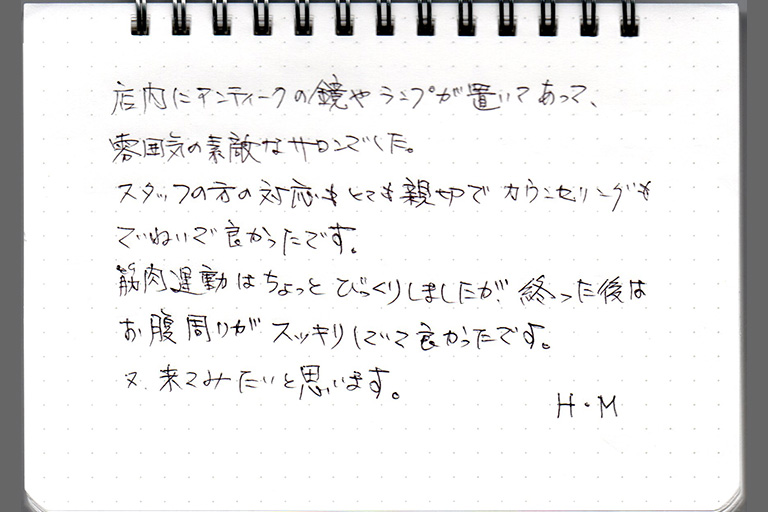 店内にアンティークの鏡やランプが置いてあって、
雰囲気の素敵なサロンでした。
スタッフの方の対応もとても親切でカウンセリングも
ていねいで良かったです。
筋肉運動はちょっとびっくりしましたが、終った後は
お腹周りがスッキリしていて良かったです。
又、来てみたいと思います。
H・M